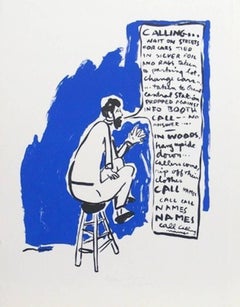 CALLING...
WAIT ON STREETS
FOR CARS TIED
IN SILVER FOIL
AND RAGS taken
to parking lot,
change cars...
taken to Grand
Central Station
PROPPED AGAINST
INTO BOOTH
CALL - NO
ANSWER...
IN WOODS,
hang upside
down...
callers come,
rip off their
clothes
CALL NAMES
CALL CALL
NAMES
NAMES
Call Call